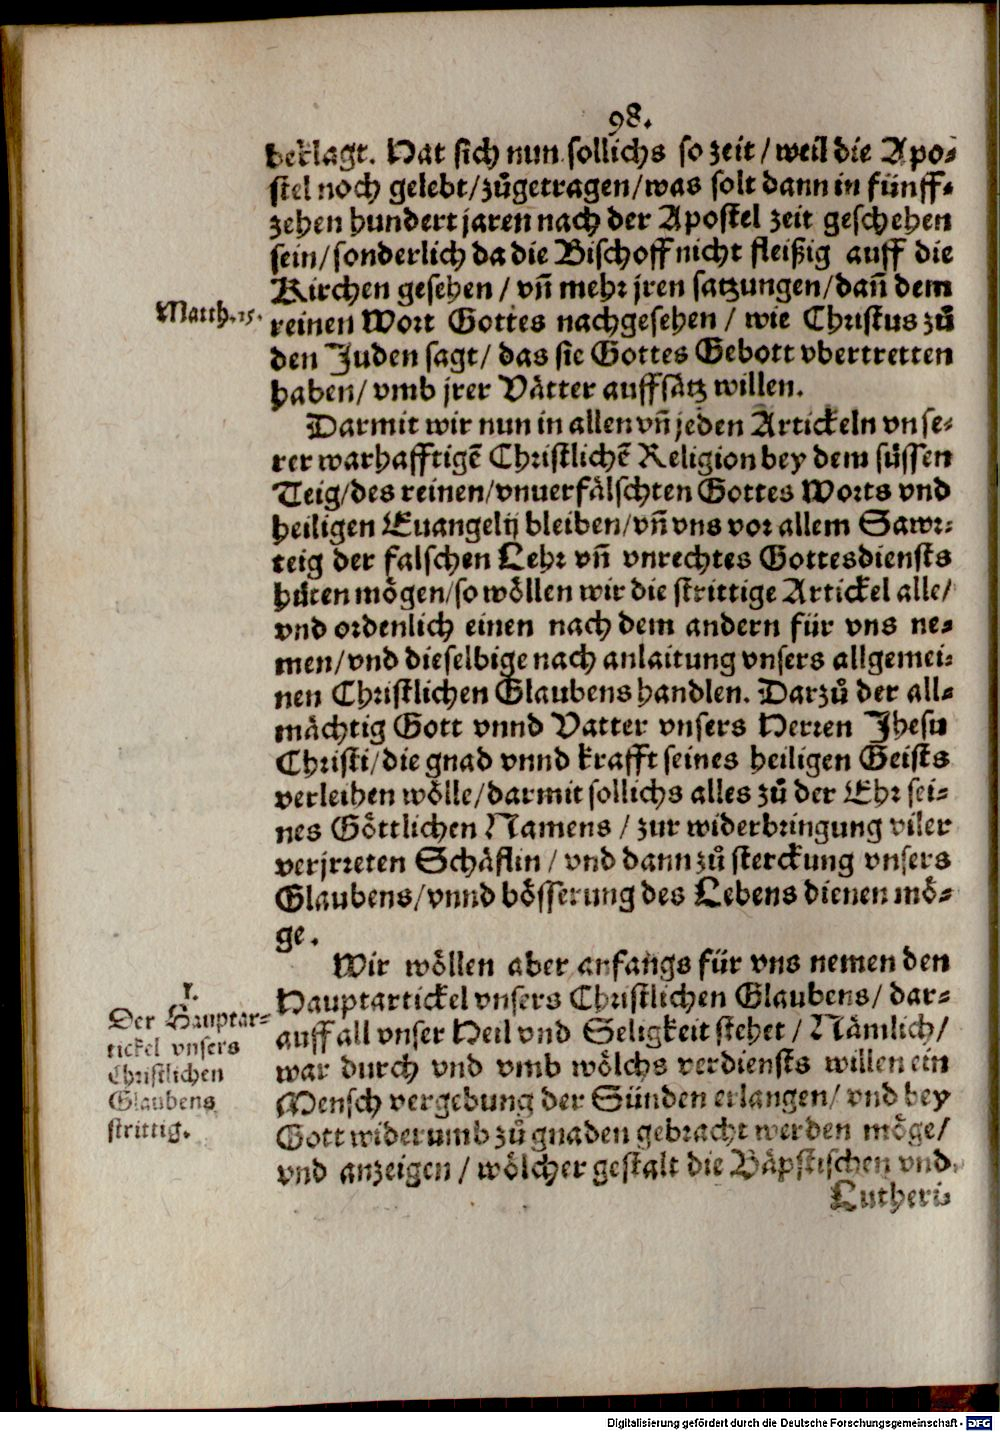 98.
beklagt. Hat sich nun sollichs so zeit / weil die Apo-
stel noch gelebt/zůgetragen/was solt dann in fünff-
zehen hundert jaren nach der Apostel zeit geschehen
sein/sonderlich da die Bischoff nicht fleißig auff die
Kirchen gesehen / vñ mehr jren satzungen/dañ dem
Matth.15.
reinen Wort Gottes nachgesehen / wie Christus zů
den Juden sagt/ das sie Gottes Gebott vbertretten
haben/ vmb jrer Vätter auffsätz willen.
Darmit wir nun in allen vñ jeden Artickeln vnse-
rer warhafftigẽ Christlichẽ Religion bey dem süssen
Teig/des reinen/vnuerfälschten Gottes Worts vnd
heiligen Euangelij bleiben/vñ vns vor allem Sawr-
teig der falschen Lehr vñ vnrechtes Gottesdiensts
hůten mögen/so wöllen wir die strittige Artickel alle/
vnd ordenlich einen nach dem andern für vns ne-
men/vnd dieselbige nach anlaitung vnsers allgemei-
nen Christlichen Glaubens handlen. Darzů der all-
mächtig Gott vnnd Vatter vnsers Herren Jhesu
Christi/die gnad vnnd krafft seines heiligen Geists
verleihen wölle/darmit sollichs alles zů der Ehr sei-
nes Göttlichen Namens / zur widerbringung viler
verjrreten Schäflin / vnd dann zů sterckung vnsers
Glaubens/vnnd bösserung des Lebens dienen mö-
ge.
Wir wöllen aber anfangs für vns nemen den
I.
Der Hauptar-
tickel vnsers
Christlichen
Glaubens
strittig.
Hauptartickel vnsers Christlichen Glaubens/ dar-
auff all vnser Heil vnd Seligkeit stehet / Nämlich/
war durch vnd vmb wölchs verdiensts willen ein
Mensch vergebung der Sünden erlangen/ vnd bey
Gott widerumb zů gnaden gebracht werden möge/
vnd anzeigen / wölcher gestalt die Bäpstischen vnd
Lutheri-
Digitalisierung gefördert durch die Deutsche Forschungsgemeinschaft - DFG